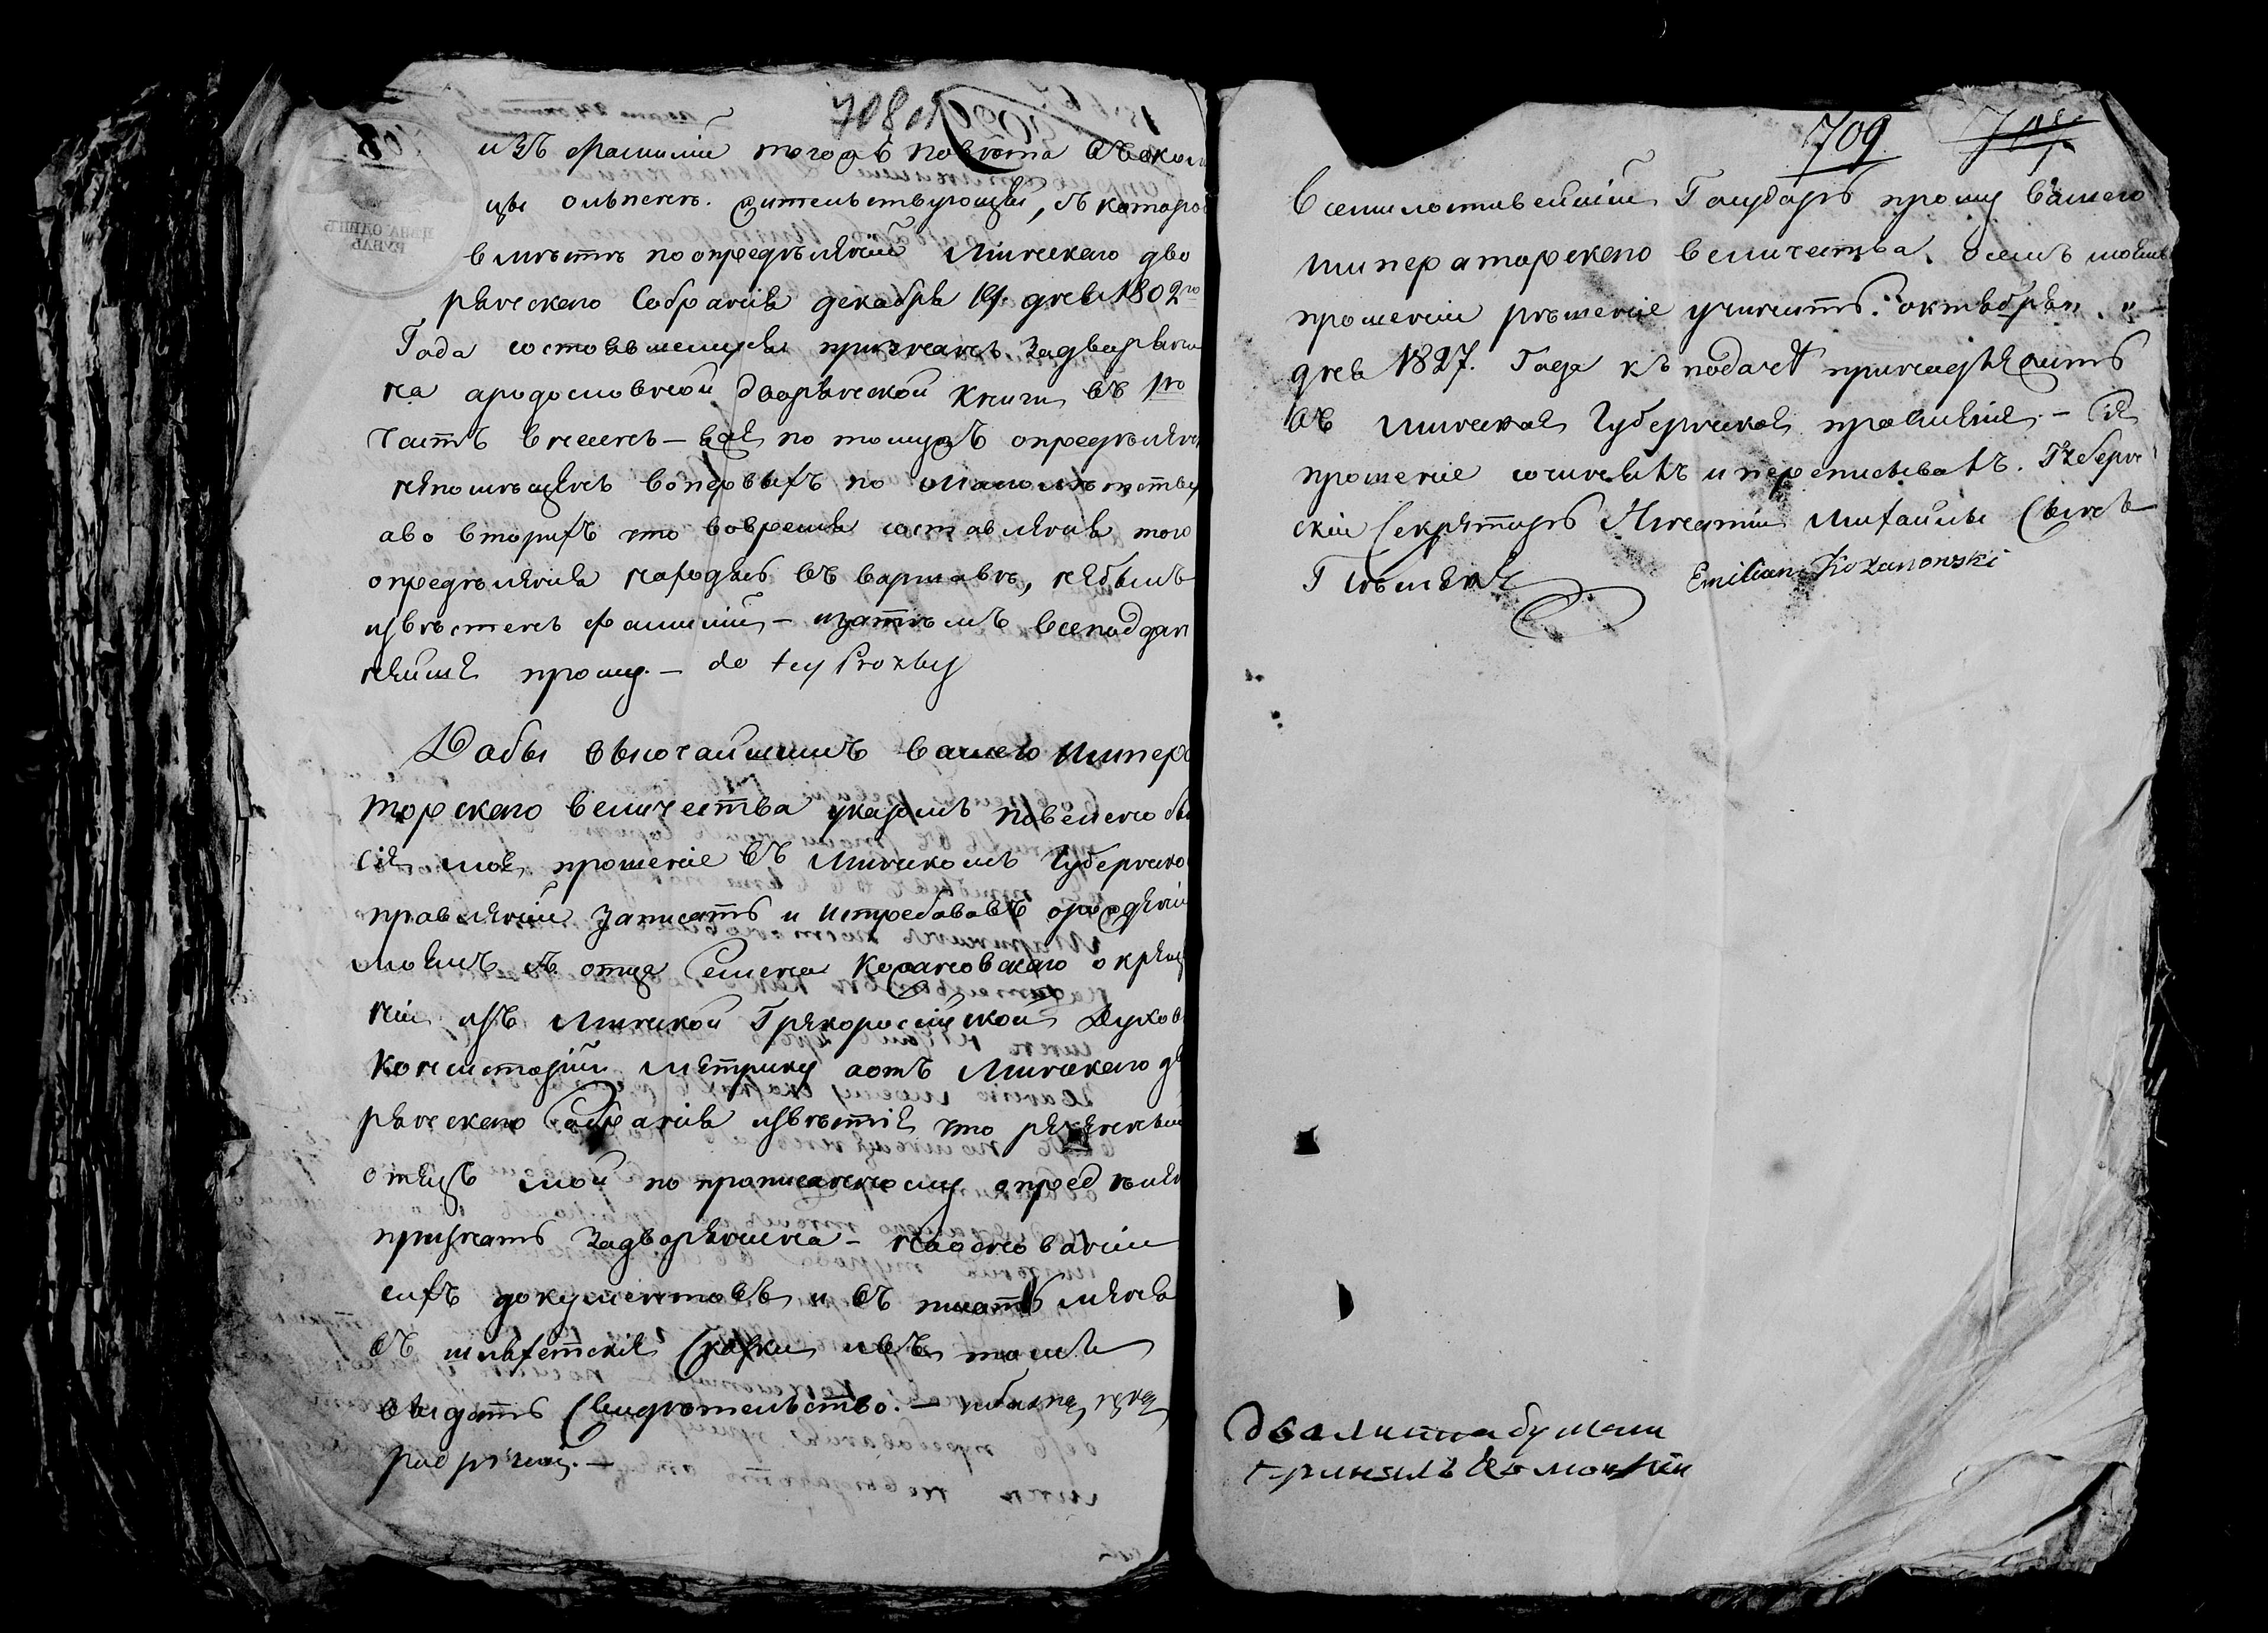 708
изъ фамилій тогожъ повѣта въ окол
цы Ольпень жительствующы, съ которо
вмѣстѣ по опредѣленію Минскаго дво
рянскаго Собранія декабря 19 дня 1802го
Года состоявшемуся признанъ задворяни
на ародословной дворянской Книги въ 1ю
часть внесенъ – но по томужъ опредѣлен
непомѣщенъ вопервыхъ по малолѣтству
аво вторыхъ что вовремя составленія того
опредѣленія находясь въ варшавѣ, небылъ
извѣстенъ фамиліи – изатѣмъ всеподдан
нейше прошу. – do tey Prozby
Дабы высочайшимъ вашего Импера
торскаго величества указомъ повелено бы
сіе мое прошеніе въ Минскомъ Губернско
правленіи записать и истребовавъ орожденіи
моемъ съ отца Семена Кожановскаго окреще
ніи изъ Минской Грекоросcійской Духов
Консисторіи метрику аотъ Минскаго дв
рянскаго Собранія извѣстіе что реченный
отецъ мой по прописанному опредѣлен
признанъ задворянина – наоснованіи
сихъ документовъ и въ писать меня
въ шляхетскіе сказки и въ томъ
выдать Свидѣтельство. –
709
Всемилостивейшій Государь прошу вашего
Императорскаго величества осемъ моемъ
прошеніи рѣшеніе учинить. октября „ „
дня 1827. Года къ подаче принадлежитъ
въ Минское Губернское правленіе. – Сіе
прошеніе сочинялъ и переписывалъ. Губерн
скій Секретарь Игнатій Михайлы Сынъ
Emilian Kozanowski
два листа бумаги